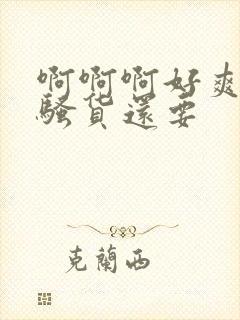 啊啊啊好爽
骚货还要
克兰西